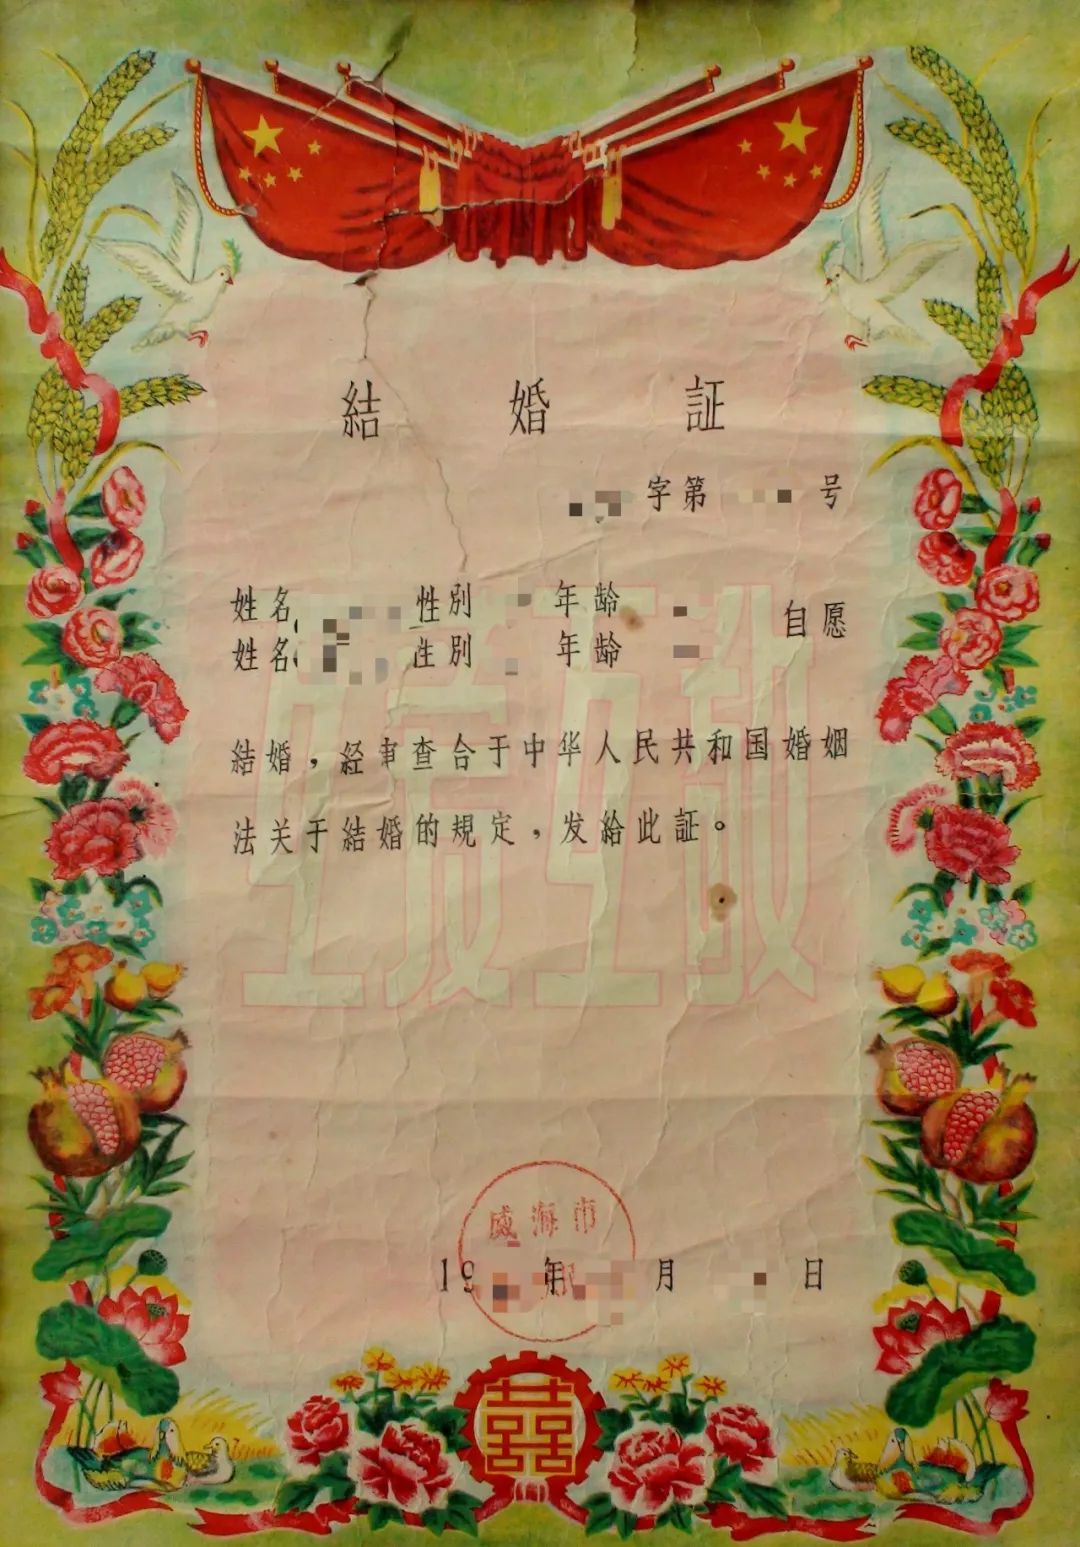 結婚証
字第 号
姓名 性別 年龄
自愿
姓名 性別 年龄
結婚，経审查合于中华人民共和国婚姻
法关于結婚的規定，发給此証。
互爱互敬
威海市
19 年 月 日
囍